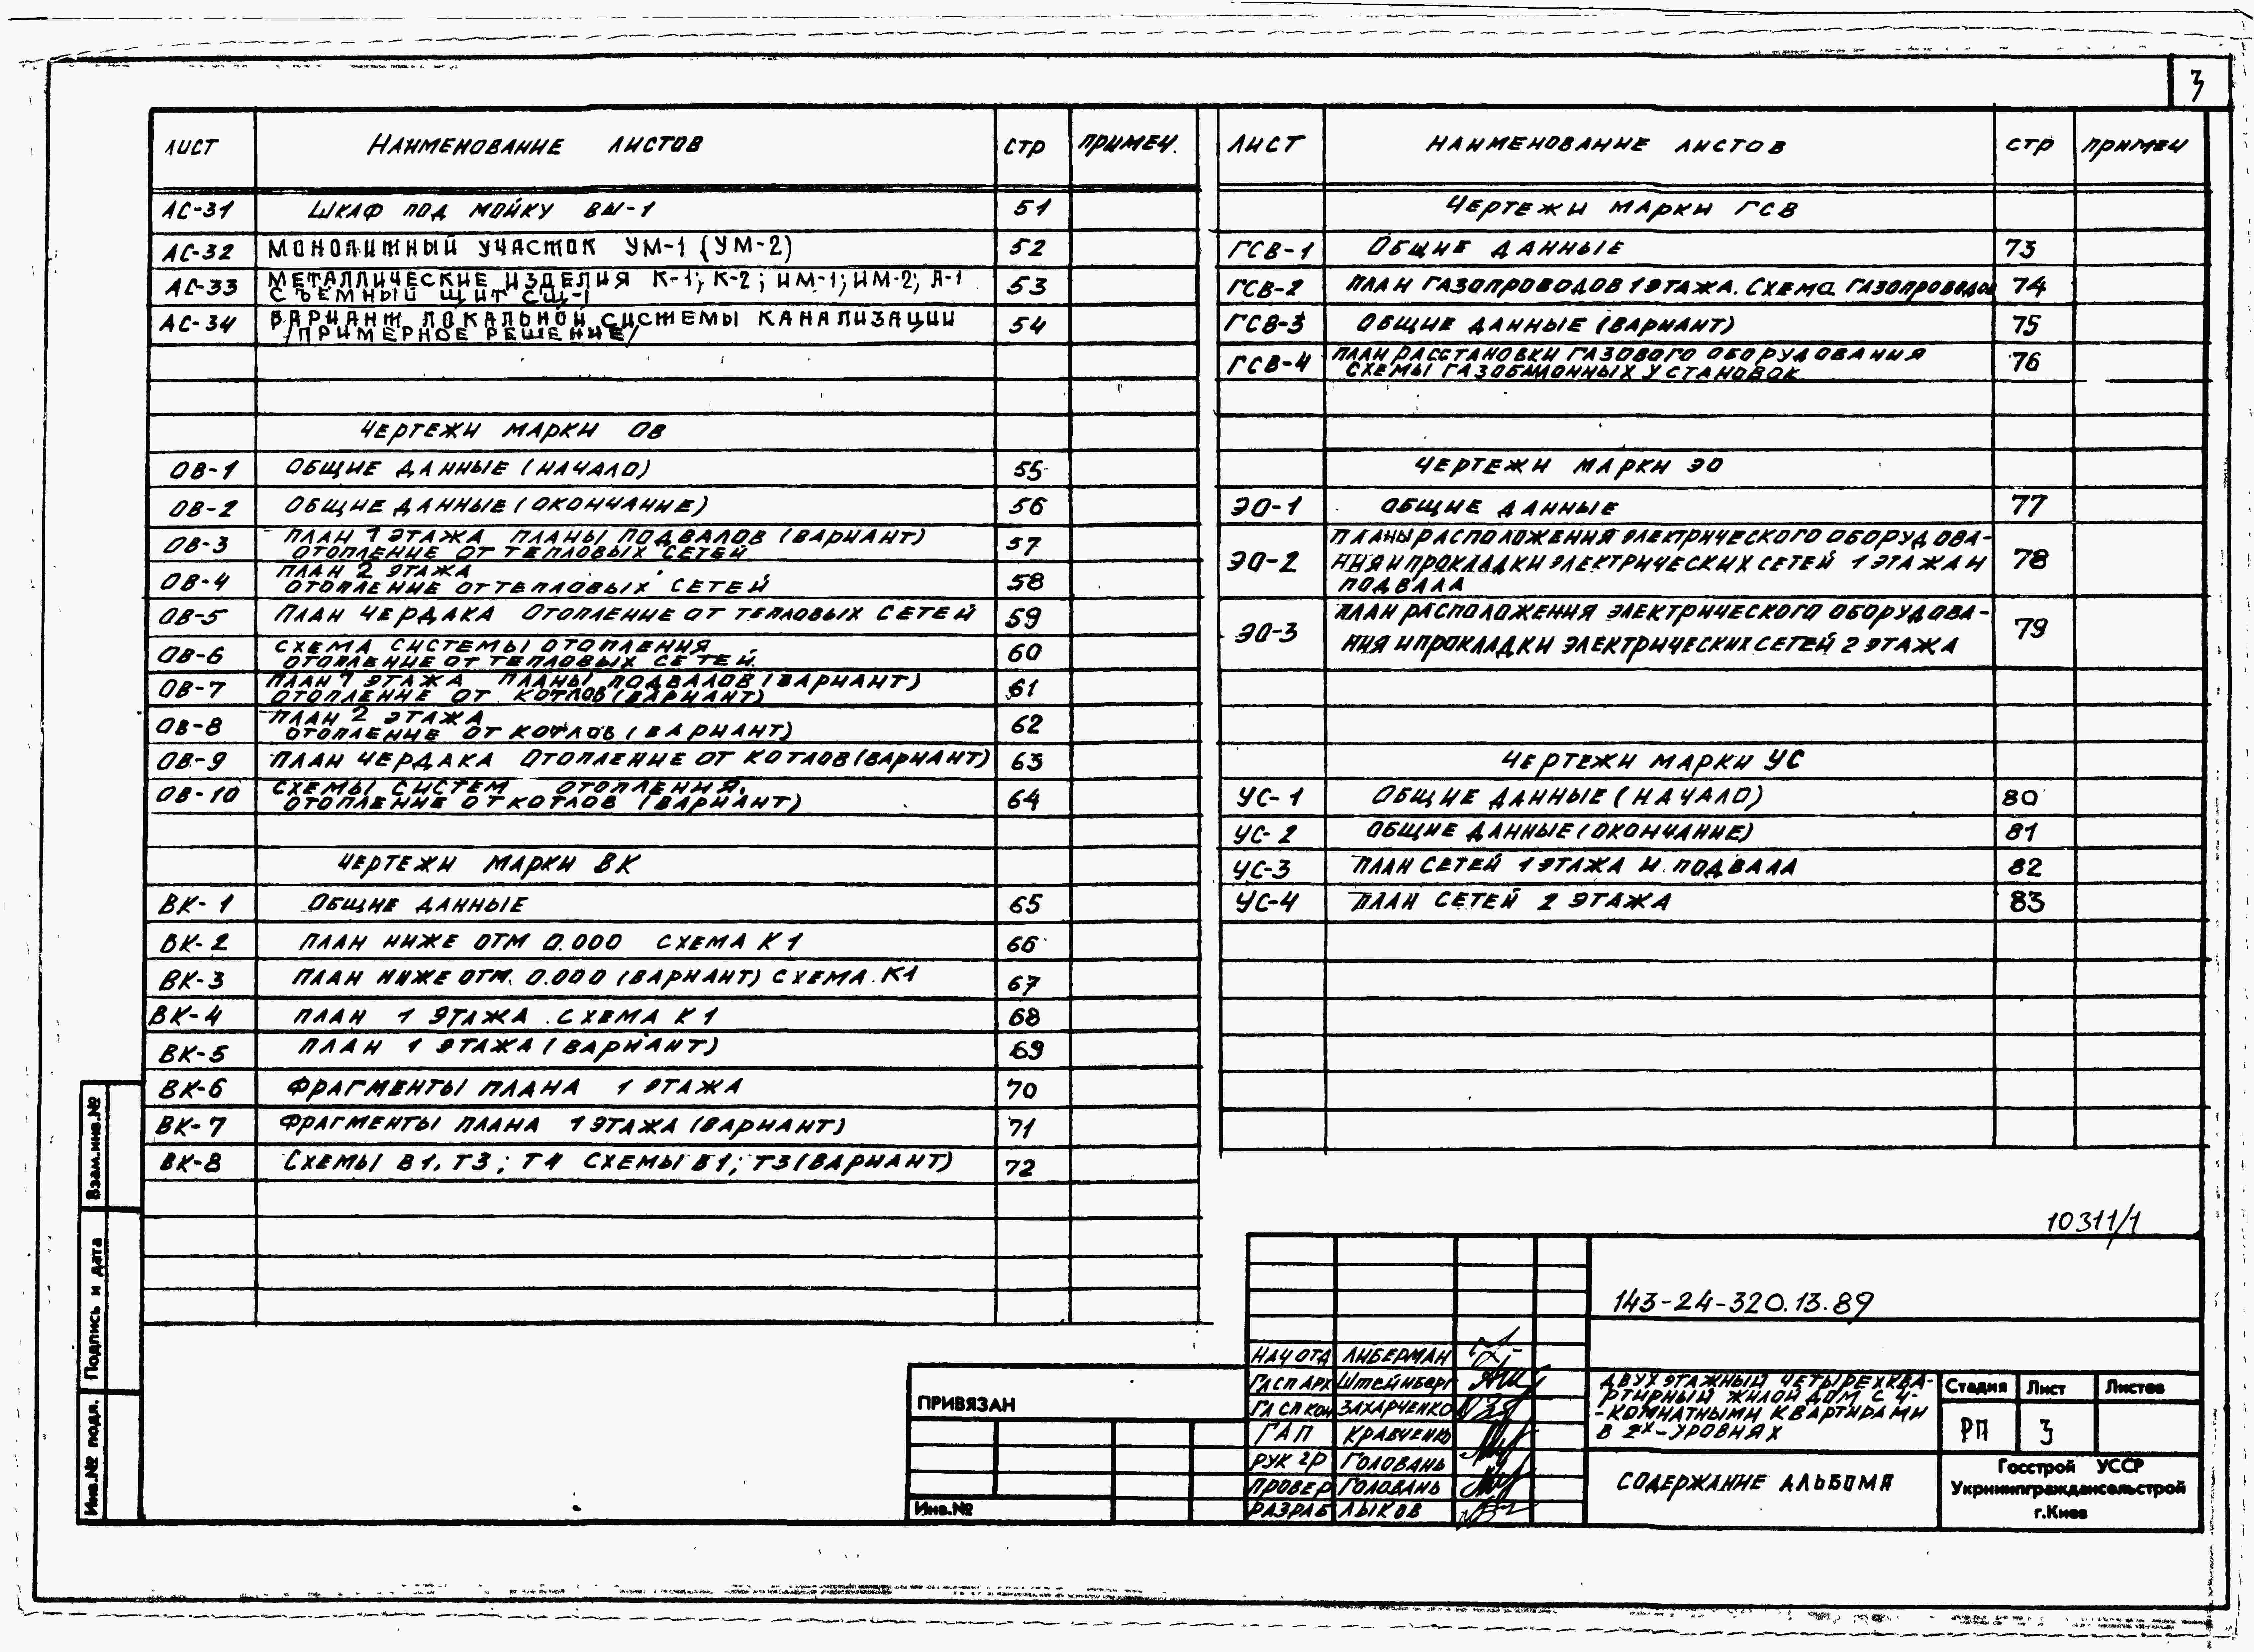 3
ЛИСТ НАИМЕНОВАНИЕ ЛИСТОВ СТР ПРИМЕЧ.
АС-31 ШКАФ ПОД МОЙКУ ВШ-1 51
АС-32 МОНОЛИТНЫЙ УЧАСТОК УМ-1 (УМ-2) 52
АС-33 МЕТАЛЛИЧЕСКИЕ ИЗДЕЛИЯ К-1; К-2; ИМ-1; ИМ-2; А-1 53
СЪЕМНЫЙ ЩИТ СЩ-1
АС-34 ВАРИАНТ ЛОКАЛЬНОЙ СИСТЕМЫ КАНАЛИЗАЦИИ 54
/ПРИМЕРНОЕ РЕШЕНИЕ/
ЧЕРТЕЖИ МАРКИ ОВ
ОВ-1 ОБЩИЕ ДАННЫЕ (НАЧАЛО) 55
ОВ-2 ОБЩИЕ ДАННЫЕ (ОКОНЧАНИЕ) 56
ОВ-3 ПЛАН 1 ЭТАЖА ПЛАНЫ ПОДВАЛОВ (ВАРИАНТ) 57
ОТОПЛЕНИЕ ОТ ТЕПЛОВЫХ СЕТЕЙ
ОВ-4 ПЛАН 2 ЭТАЖА 58
ОТОПЛЕНИЕ ОТ ТЕПЛОВЫХ СЕТЕЙ
ОВ-5 ПЛАН ЧЕРДАКА ОТОПЛЕНИЕ ОТ ТЕПЛОВЫХ СЕТЕЙ 59
ОВ-6 СХЕМА СИСТЕМЫ ОТОПЛЕНИЯ 60
ОТОПЛЕНИЕ ОТ ТЕПЛОВЫХ СЕТЕЙ.
ОВ-7 ПЛАН 1 ЭТАЖА ПЛАНЫ ПОДВАЛОВ (ВАРИАНТ) 61
ОТОПЛЕНИЕ ОТ КОТЛОВ (ВАРИАНТ)
ОВ-8 ПЛАН 2 ЭТАЖА 62
ОТОПЛЕНИЕ ОТ КОТЛОВ (ВАРИАНТ)
ОВ-9 ПЛАН ЧЕРДАКА ОТОПЛЕНИЕ ОТ КОТЛОВ (ВАРИАНТ) 63
ОВ-10 СХЕМЫ СИСТЕМ ОТОПЛЕНИЯ. 64
ОТОПЛЕНИЕ ОТ КОТЛОВ (ВАРИАНТ)
ЧЕРТЕЖИ МАРКИ ВК
ВК-1 ОБЩИЕ ДАННЫЕ 65
ВК-2 ПЛАН НИЖЕ ОТМ 0.000 СХЕМА К1 66
ВК-3 ПЛАН НИЖЕ ОТМ. 0.000 (ВАРИАНТ) СХЕМА К1 67
ВК-4 ПЛАН 1 ЭТАЖА. СХЕМА К1 68
ВК-5 ПЛАН 1 ЭТАЖА (ВАРИАНТ) 69
ВК-6 ФРАГМЕНТЫ ПЛАНА 1 ЭТАЖА 70
ВК-7 ФРАГМЕНТЫ ПЛАНА 1 ЭТАЖА (ВАРИАНТ) 71
ВК-8 СХЕМЫ В1, Т3; Т4 СХЕМЫ В1; Т3 (ВАРИАНТ) 72
ЛИСТ НАИМЕНОВАНИЕ ЛИСТОВ СТР ПРИМЕЧ
ЧЕРТЕЖИ МАРКИ ГСВ
ГСВ-1 ОБЩИЕ ДАННЫЕ 73
ГСВ-2 ПЛАН ГАЗОПРОВОДОВ 1 ЭТАЖА. СХЕМА ГАЗОПРОВОДОВ 74
ГСВ-3 ОБЩИЕ ДАННЫЕ (ВАРИАНТ) 75
ГСВ-4 ПЛАН РАССТАНОВКИ ГАЗОВОГО ОБОРУДОВАНИЯ 76
СХЕМЫ ГАЗОБАЛОННЫХ УСТАНОВОК
ЧЕРТЕЖИ МАРКИ ЭО
ЭО-1 ОБЩИЕ ДАННЫЕ 77
ЭО-2 ПЛАНЫ РАСПОЛОЖЕНИЯ ЭЛЕКТРИЧЕСКОГО ОБОРУДОВА- 78
НИЯ И ПРОКЛАДКИ ЭЛЕКТРИЧЕСКИХ СЕТЕЙ 1 ЭТАЖА И
ПОДВАЛА
ЭО-3 ПЛАН РАСПОЛОЖЕНИЯ ЭЛЕКТРИЧЕСКОГО ОБОРУДОВА- 79
НИЯ И ПРОКЛАДКИ ЭЛЕКТРИЧЕСКИХ СЕТЕЙ 2 ЭТАЖА
ЧЕРТЕЖИ МАРКИ УС
УС-1 ОБЩИЕ ДАННЫЕ (НАЧАЛО) 80
УС-2 ОБЩИЕ ДАННЫЕ (ОКОНЧАНИЕ) 81
УС-3 ПЛАН СЕТЕЙ 1 ЭТАЖА И ПОДВАЛА 82
УС-4 ПЛАН СЕТЕЙ 2 ЭТАЖА 83
10311/1
143-24-320.13.89
НАЧ ОТД ЛИБЕРМАН
ГЛ СП АРХ ШТЕЙНБЕРГ
ГЛ СП КОН ЗАХАРЧЕНКО
ГАП КРАВЧЕНКО
РУК ГР ГОЛОВАНЬ
ПРОВЕР ГОЛОВАНЬ
РАЗРАБ ЛЫКОВ
ДВУХЭТАЖНЫЙ ЧЕТЫРЕХКВА-
РТИРНЫЙ ЖИЛОЙ ДОМ С 4-
-КОМНАТНЫМИ КВАРТИРАМИ
В 2Х-УРОВНЯХ
Стадия Лист Листов
РП 3
СОДЕРЖАНИЕ АЛЬБОМА
Госстрой УССР
Укрниипграждансельстрой
г.Киев
ПРИВЯЗАН
Инв.№
Взам.инв.№
Подпись и дата
Инв.№ подл.